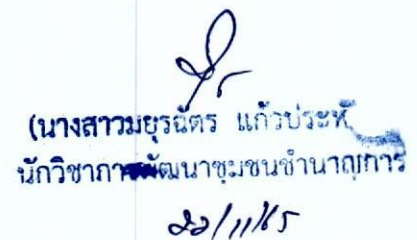 (นางสาวมยุรฉัตร แก้วประห
นักวิชาการพัฒนาชุมชนชำนาญการ